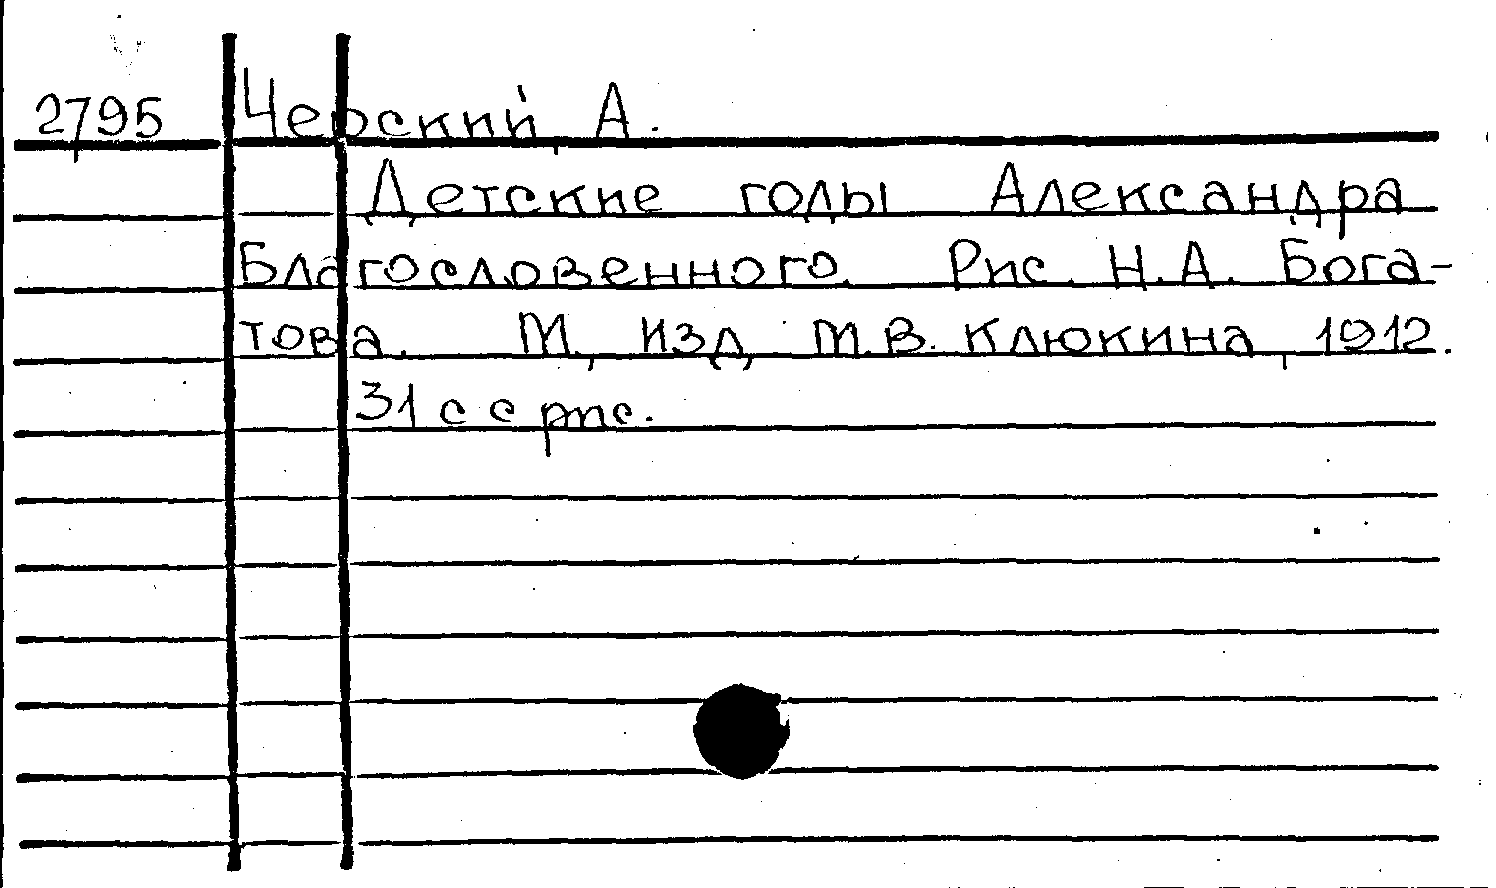 2795 Черский, А.
Детские годы Александра
Благословенного. Рис. Н.А. Бога-
това. М., изд. М.В. Клюкина, 1912.
31 с. с рис.